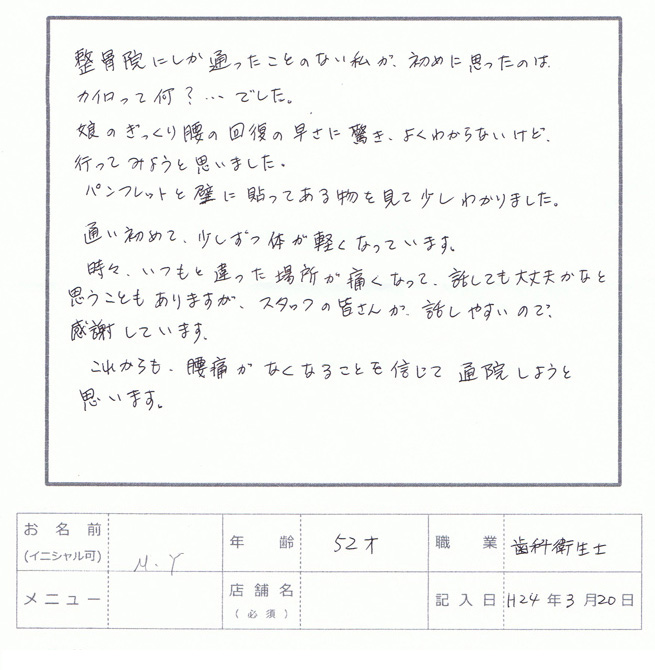 整骨院にしか通ったことのない私が、初めに思ったのは、
カイロって何？…でした。
娘のぎっくり腰の回復の早さに驚き、よくわからないけど、
行ってみようと思いました。
パンフレットと壁に貼ってある物を見て少しわかりました。
通い初めて、少しずつ体が軽くなっています。
時々、いつもと違った場所が痛くなって、話しても大丈夫かなと
思うこともありますが、スタッフの皆さんが、話しやすいので、
感謝しています。
これからも、腰痛がなくなることを信じて通院しようと
思います。
お名前 (イニシャル可) M.Y 年齢 52才 職業 歯科衛生士
メニュー 店舗名 (必須) 記入日 H24年3月20日